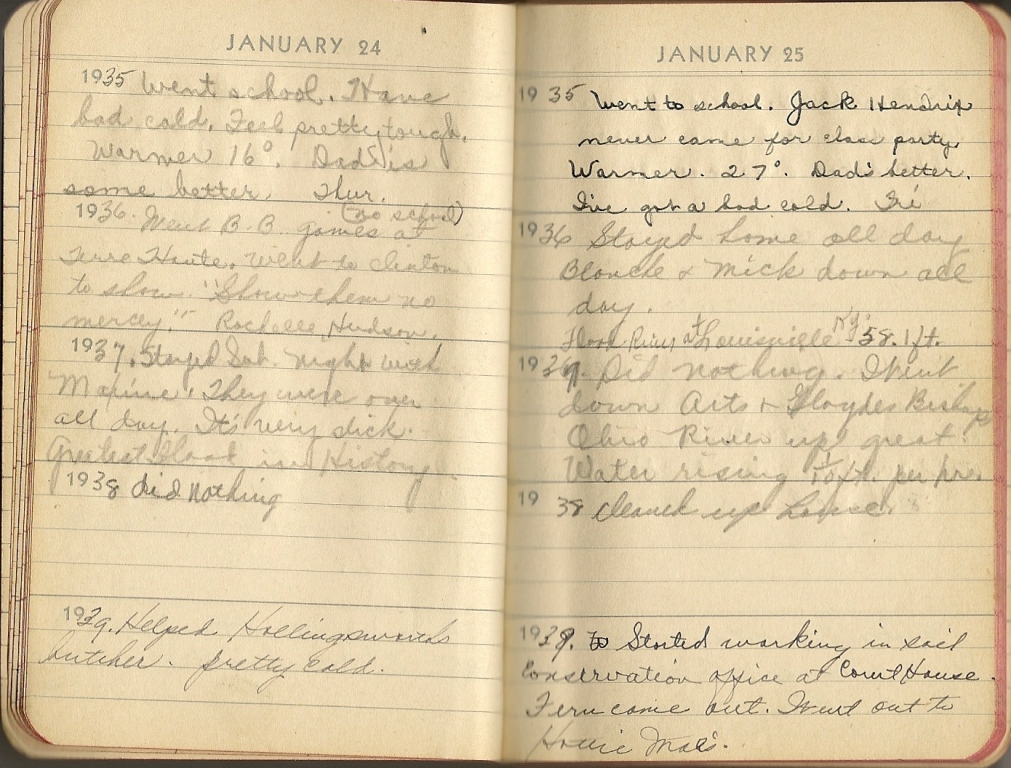 JANUARY 24
1935 Went school. Have
bad cold. Feel pretty tough.
Warmer 16°. Dad is
some better. Thur.
1936. Went B.B. games at (no school)
Terre Haute. Went to Clinton
to show. "Show them no
mercy." Rochelle Hudson.
1937. Stayed Sat. night with
Maxine. They were over
all day. It's very slick.
Greatest flood in History.
1938 did nothing
1939. Helped Hollingsworth
butcher. pretty cold.
JANUARY 25
1935 Went to school. Jack Hendrix
never came for class party
Warmer. 27°. Dad's better.
I've got a bad cold. Fri
1936 Stayed home all day
Blanche & Mick down all
day.
Flood River at Louisville Ky. 58.1 ft.
1937. Did nothing. Went
down Arts & Floydes
Ohio River up great.
Water rising 1/10 ft. per hr.
1938 cleaned up house.
1939. Started working in soil
Conservation office at Court House.
Fern came out. Went out to
Mae's.